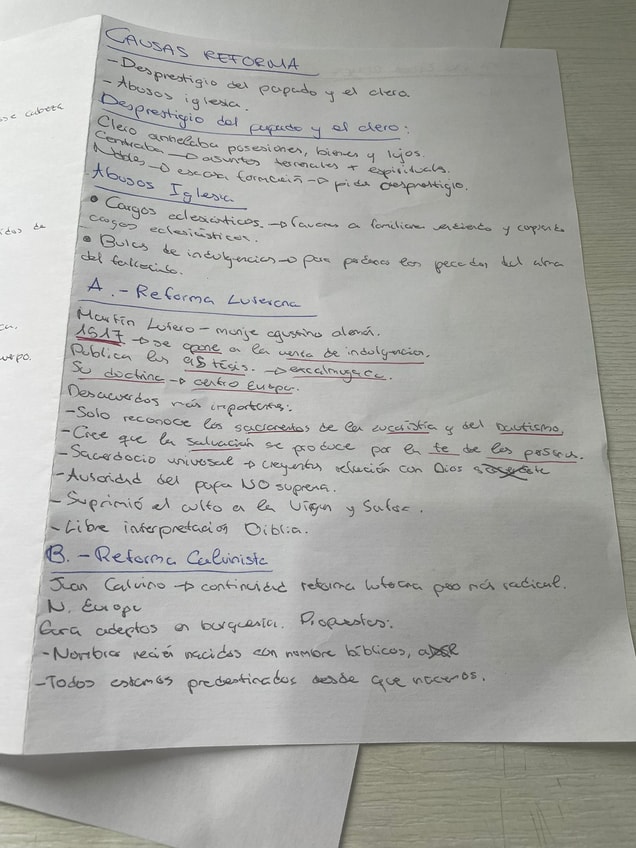 CAUSAS REFORMA
- Desprestigio del papado y el clero
- Abusos iglesia.
Desprestigio del papado y el clero:
Clero anhelaba posesiones, bienes y lujos.
Centraba → asuntos terrenales + espirituales.
Nobles → escasa formación → pida desprestigio.
Abusos Iglesia
• Cargos eclesiásticos. → favores a familiares vendiendo y
cargos eclesiásticos.
• Bulas de indulgencias → para perdonar los pecados del alma
del fallecido.
A.- Reforma Luterana
Martín Lutero - monje agustino alemán.
1517 → se opone a la venta de indulgencias.
Publica las 95 tesis. →
Su doctrina → centro Europa.
Desacuerdos más importantes:
- Solo reconoce los sacramentos de la eucaristía y del bautismo,
- Cree que la salvación se produce por la fe de las personas.
- Sacerdocio universal → creyentes relación con Dios
- Autoridad del papa NO suprema.
- Suprimió el culto a la Virgen y
- Libre interpretación Biblia.
B.- Reforma Calvinista
Juan Calvino → continuidad reforma luterana pero más radical.
N. Europa
Gana adeptos en burguesía. Propuestas:
- Nombrar recién nacidos con nombre bíblicos,
- Todos estamos predestinados desde que nacemos.